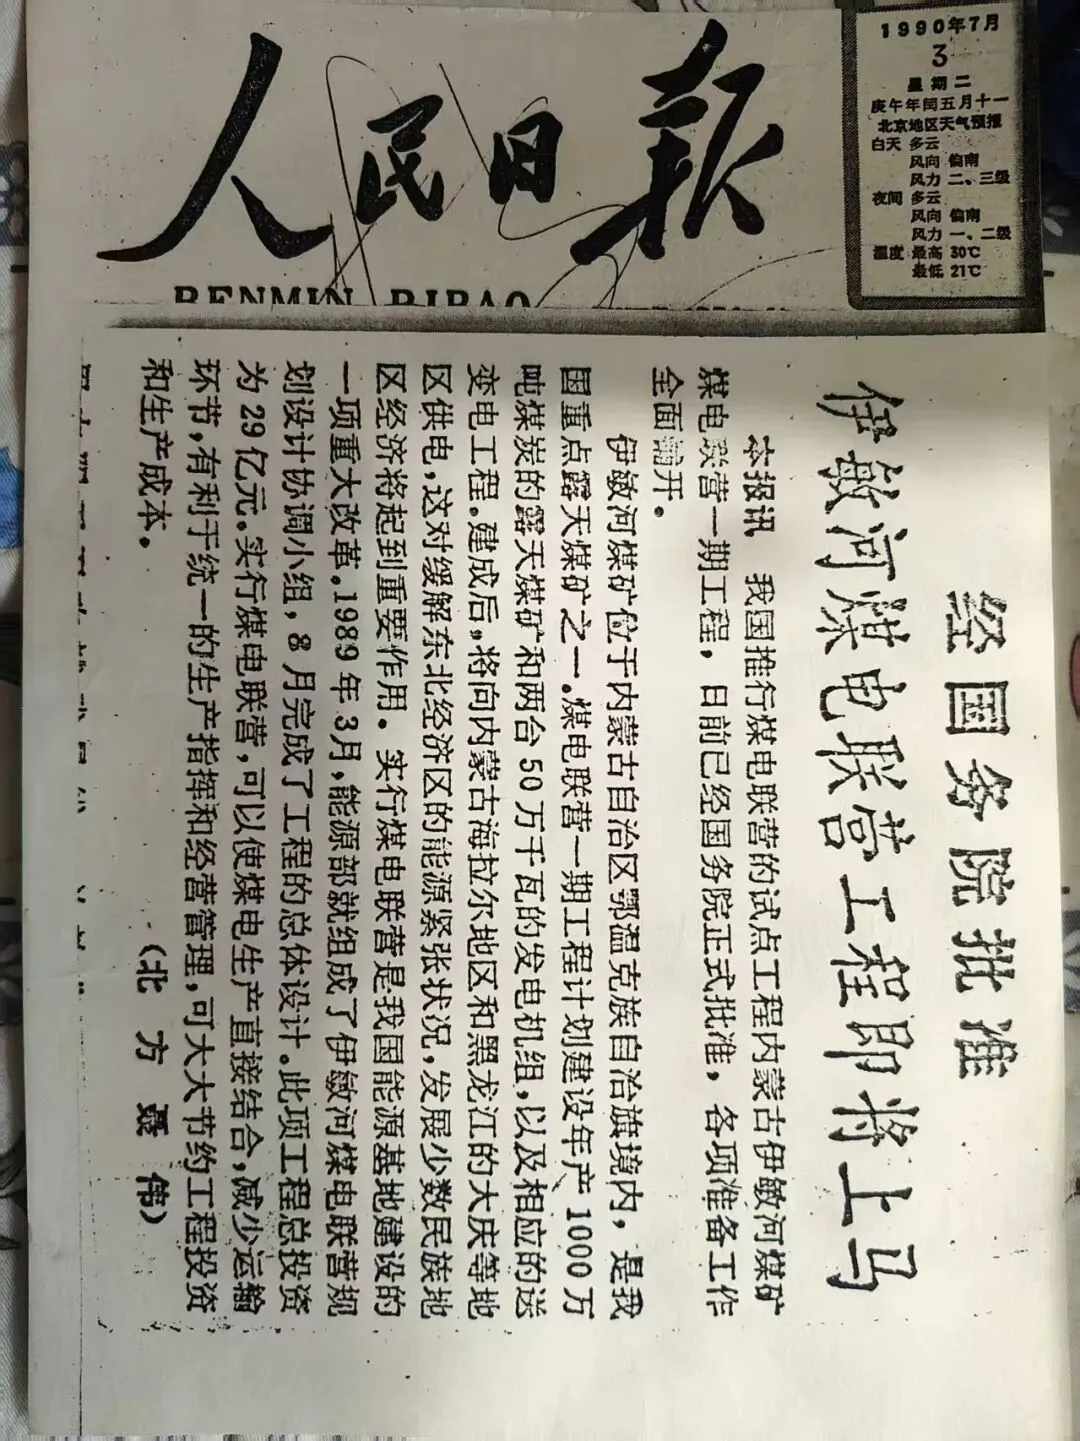 人民日报
RENMIN RIBAO
1990年7月
3
星期二
庚午年闰五月十一
北京地区天气预报
白天 多云
风向 偏南
风力 二、三级
夜间 多云
风向 偏南
风力 一、二级
温度 最高 30℃
最低 21℃
经国务院批准
伊敏河煤电联营工程即将上马
本报讯 我国推行煤电联营的试点工程内蒙古伊敏河煤矿
煤电联营一期工程，日前已经国务院正式批准，各项准备工作
全面铺开。
伊敏河煤矿位于内蒙古自治区鄂温克族自治旗境内，是我
国重点露天煤矿之一。煤电联营一期工程计划建设年产1000万
吨煤炭的露天煤矿和两台50万千瓦的发电机组，以及相应的送
变电工程。建成后，将向内蒙古海拉尔地区和黑龙江的大庆等地
区供电，这对缓解东北经济区的能源紧张状况，发展少数民族地
区经济将起到重要作用。实行煤电联营是我国能源基地建设的
一项重大改革。1989年3月，能源部就组成了伊敏河煤电联营规
划设计协调小组，8月完成了工程的总体设计。此项工程总投资
为29亿元。实行煤电联营，可以使煤电生产直接结合，减少运输
环节，有利于统一的生产指挥和经营管理，可大大节约工程投资
和生产成本。
（北方 聂伟）